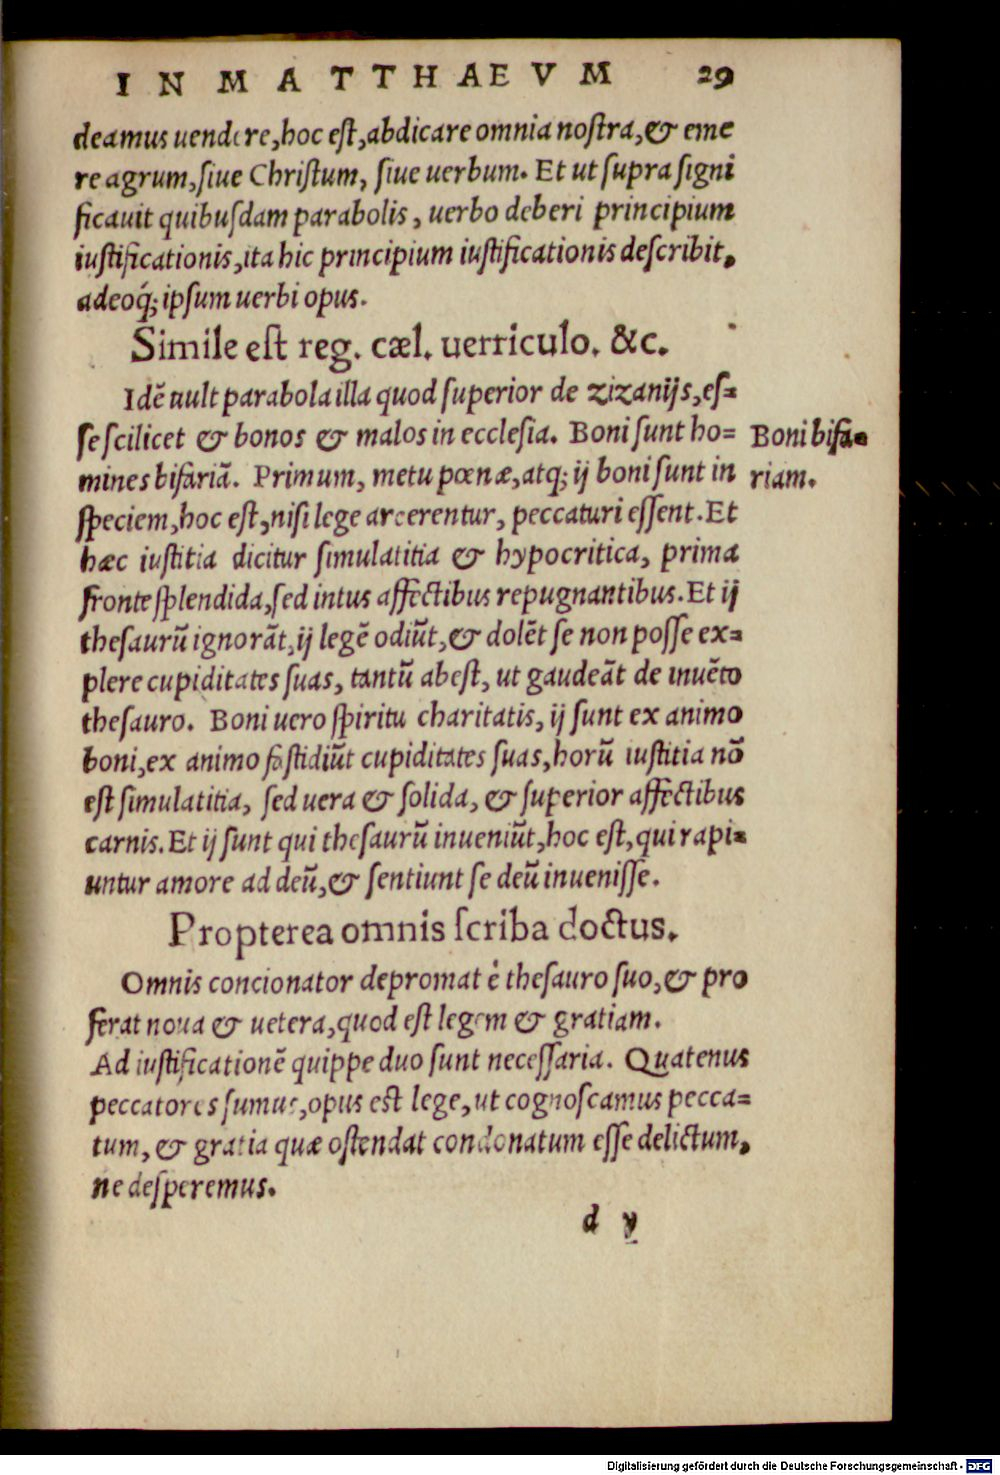 IN MATTHAEVM 29
deamus uendere, hoc est, abdicare omnia nostra, & eme
re agrum, siue Christum, siue uerbum. Et ut supra signi
ficauit quibusdam parabolis, uerbo deberi principium
iustificationis, ita hic principium iustificationis describit,
adeoq́; ipsum uerbi opus.
Simile est reg. cæl. uerriculo. &c.
Idē uult parabola illa quod superior de zizanijs, es=
se scilicet & bonos & malos in ecclesia. Boni sunt ho=
mines bifariā. Primum, metu pœnæ, atq; ij boni sunt in
speciem, hoc est, nisi lege arcerentur, peccaturi essent. Et
hæc iustitia dicitur simulatitia & hypocritica, prima
fronte splendida, sed intus affectibus repugnantibus. Et ij
thesaurū ignorāt, ij legē odiūt, & dolēt se non posse ex=
plere cupiditates suas, tantū abest, ut gaudeāt de inuēto
thesauro. Boni uero spiritu charitatis, ij sunt ex animo
boni, ex animo fastidiūt cupiditates suas, horū iustitia nō
est simulatitia, sed uera & solida, & superior affectibus
carnis. Et ij sunt qui thesaurū inueniūt, hoc est, qui rapi=
untur amore ad deū, & sentiunt se deū inuenisse.
Boni bifa=
riam.
Propterea omnis scriba doctus.
Omnis concionator depromat è thesauro suo, & pro
ferat noua & uetera, quod est legem & gratiam.
Ad iustificationē quippe duo sunt necessaria. Quatenus
peccatores sumus, opus est lege, ut cognoscamus pecca=
tum, & gratia quæ ostendat condonatum esse delictum,
ne desperemus.
d v
Digitalisierung gefördert durch die Deutsche Forschungsgemeinschaft - DFG